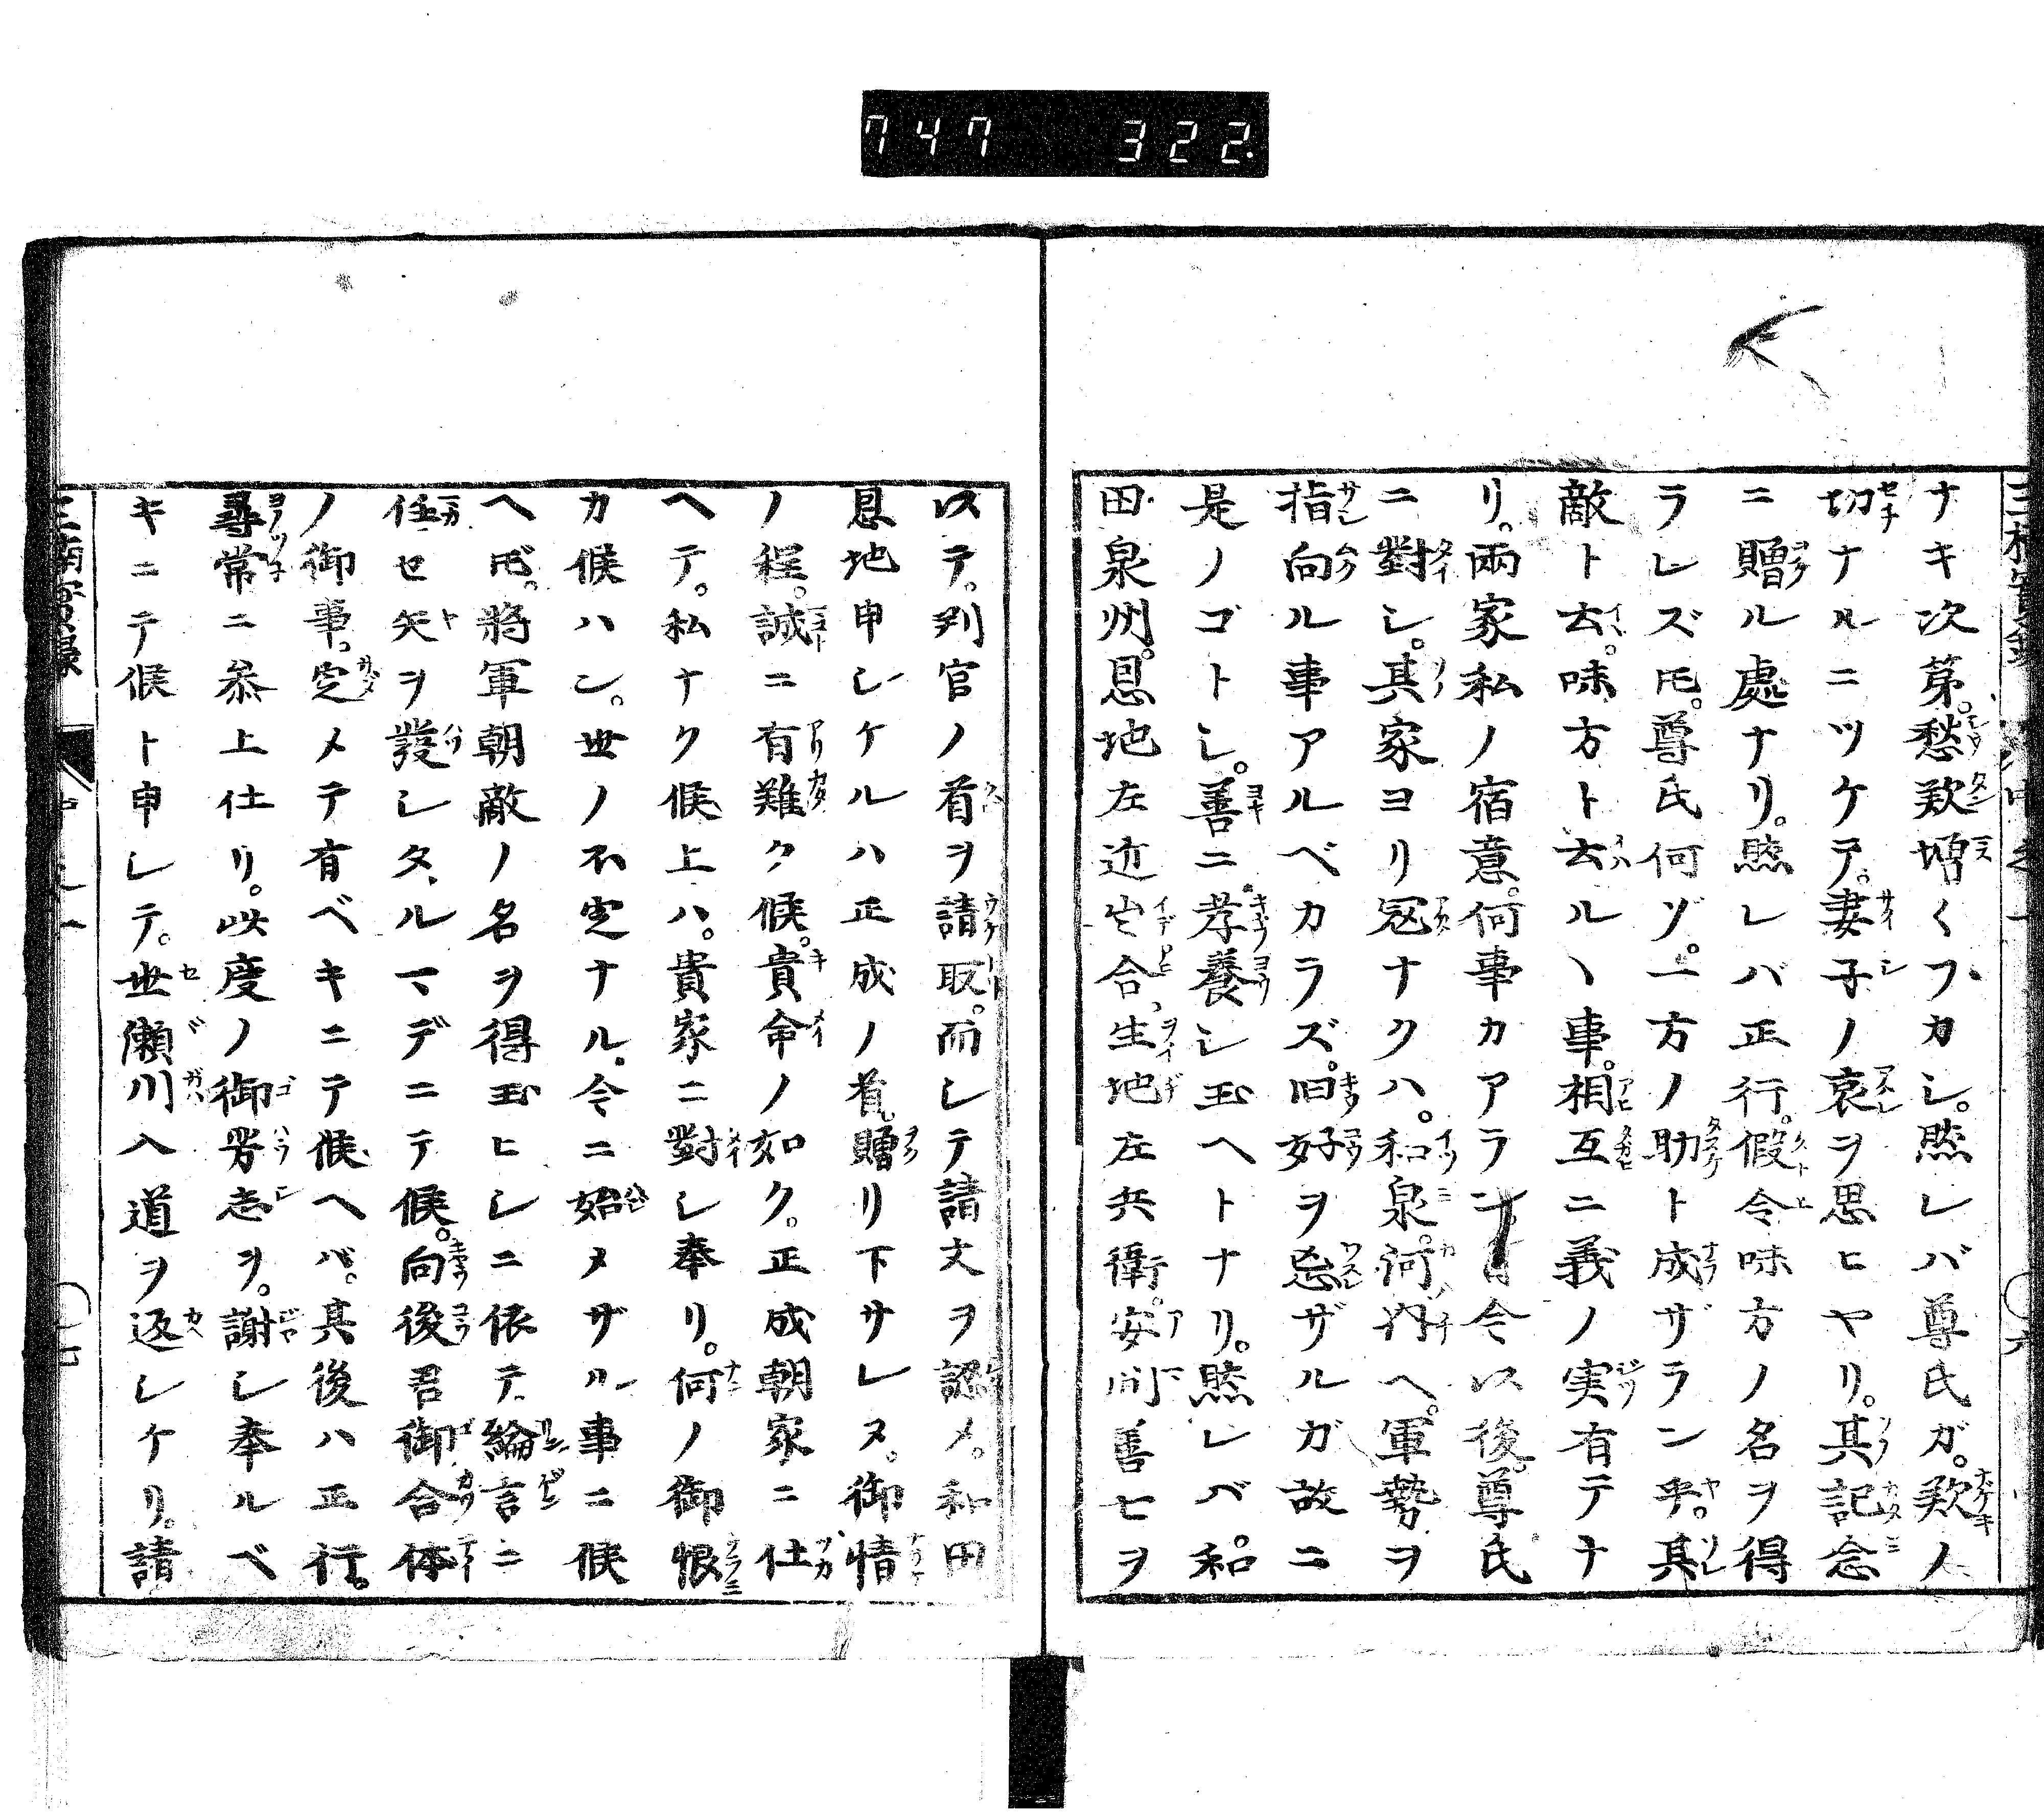 747 322
ナキ次第。愁歎増々フカシ。然レバ尊氏ガ。歎ノ
切ナルニツケテ。妻子ノ哀ヲ思ヒヤリ。其記念
ニ贈ル處ナリ。然レバ正行。假令味方ノ名ヲ得
ラレズ𪜈。尊氏何ゾ。一方ノ助ト成ザラン乎。其
敵ト去。味方ト去ルヽ事。相互ニ義ノ実有テナ
リ。兩家私ノ宿意。何事カアラン。自今以後。尊氏
ニ對シ。其家ヨリ冦ナクハ。和泉。河内ヘ。軍勢ヲ
指向ル事アルベカラズ。旧好ヲ忘ザルガ故ニ
是ノゴトシ。善ニ孝養シ玉ヘトナリ。然レバ。和
田泉州。恩地左近出合、生地左兵衛。安間善七ヲ
以テ。判官ノ首ヲ請取。而シテ請文ヲ認メ。和田
恩地申シケルハ正成ノ首。贈リ下サレヌ。御情
ノ程。誠ニ有難ク候。貴命ノ如ク。正成朝家ニ仕
ヘテ。私ナク候上ハ。貴家ニ對シ奉リ。何ノ御恨
カ候ハン。世ノ不定ナル。今ニ始メザル事ニ候
ヘ𪜈。將軍朝敵ノ名ヲ得玉ヒシニ依テ。綸言ニ
任セ矢ヲ發シタルマデニテ候。向後君御合体
ノ御事。定メテ有ベキニテ候ヘバ。其後ハ正行。
尋常ニ参上仕リ。此度ノ御芳志ヲ。謝シ奉ルベ
キニテ候ト申シテ。世瀬川入道ヲ返シケリ。請